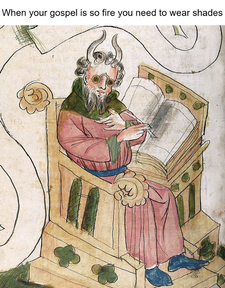 When your gospel is so fire you need to wear shades